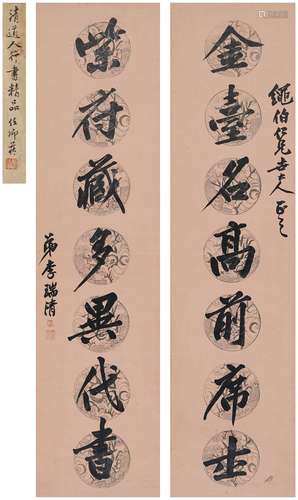 繩伯仁兄世大人正之
金臺名高前席士
紫府藏多異代書
弟李瑞清
清道人行書精品